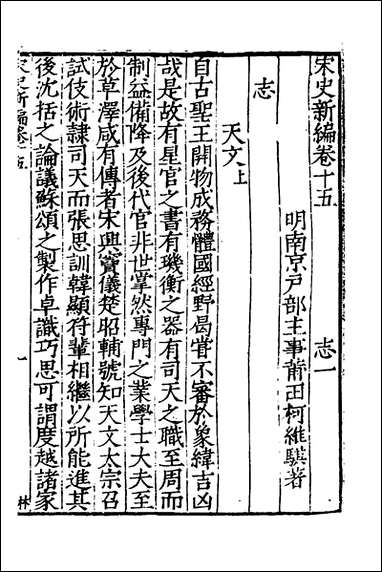 宋史新編卷十五　志一
明南京戶部主事莆田柯維騏著
志
天文上
自古聖王開物成務體國經野曷嘗不審於象緯吉凶
哉是故有星官之書有璣衡之器有司天之職至周而
制益備降及後代官非世掌然專門之業學士大夫至
於草澤咸有傳者宋興竇儀楚昭輔號知天文太宗召
試伎術隸司天而張思訓韓顯符輩相繼以所能進其
後沈括之論議蘇頌之製作卓識巧思可謂度越諸家
宋史新編卷十五　一　林